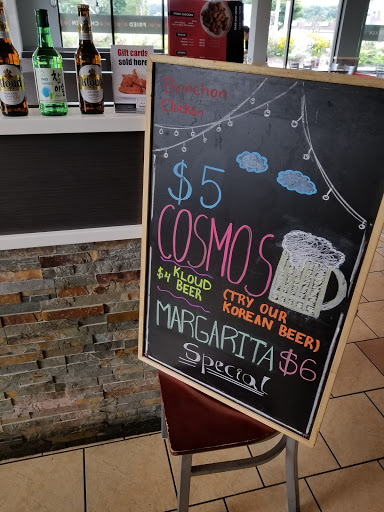 Gift cards
sold here
Bonchon
Chicken
$5
COSMOS
$4 KLOUD
BEER
(TRY OUR
KOREAN BEER)
MARGARITA $6
Special